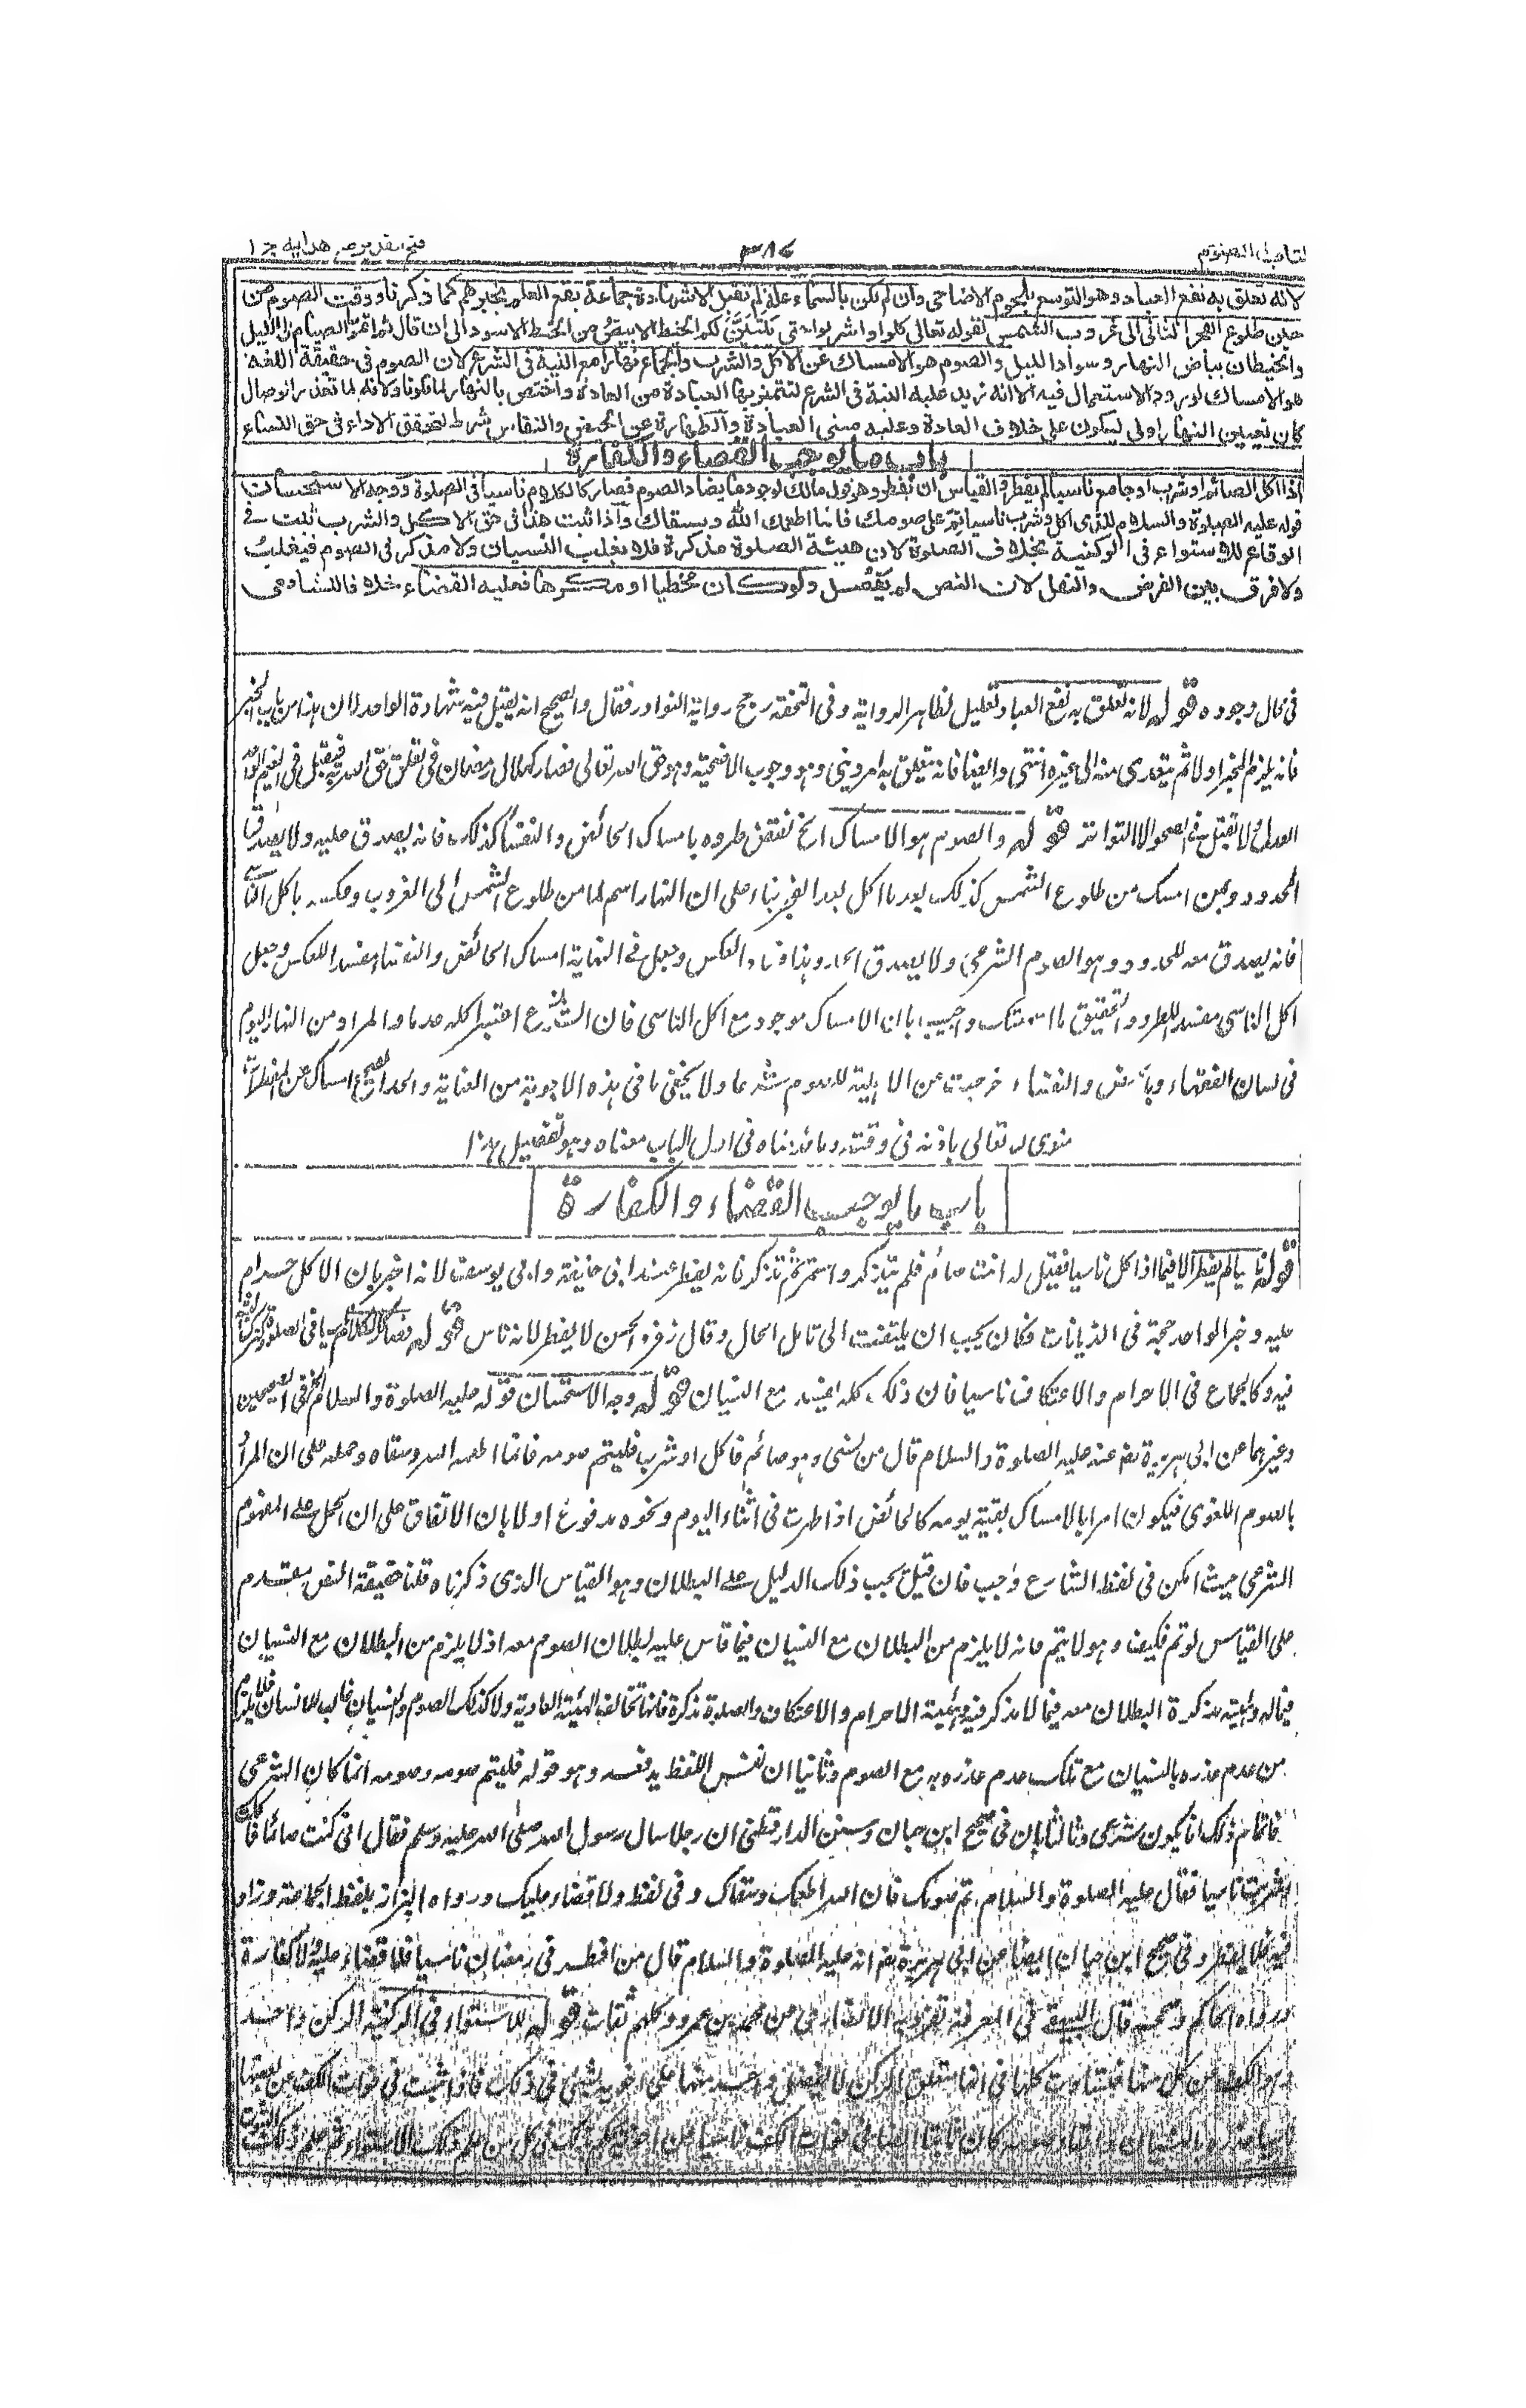 كتاب الصوم
٣٨٤
فتح القدير مع هداية ج ١
لانه تعلق به نفع العباد وهو التوسع بلحوم الاضاحى وان لم يكن بالسماء علة لم تقبل الا شهادة جماعة يقع العلم بخبرهم كما ذكرنا ووقت الصوم من
حين طلوع الفجر الثانى الى غروب الشمس لقوله تعالى كلوا واشربوا حتى يتبين لكم الخيط الابيض من الخيط الاسود الى ان قال ثم اتموا الصيام الى الليل
والخيطان بياض النهار وسواد الليل والصوم هو الامساك عن الاكل والشرب والجماع نهارا مع النية فى الشرع لان الصوم فى حقيقة اللغة
هو الامساك لورود الاستعمال فيه الا انه زيد عليه النية فى الشرع لتتميز بها العبادة من العادة واختص بالنهار لما تلونا ولانه لما تعذر الوصال
كان تعيين النهار اولى ليكون على خلاف العادة وعليه مبنى العبادة والطهارة عن الحيض والنفاس شرط لتحقق الاداء فى حق النساء
باب ما يوجب القضاء والكفارة
اذا اكل الصائم او شرب او جامع ناسيا لم يفطر والقياس ان يفطر وهو قول مالك لوجود ما يضاد الصوم فصار كالكلام ناسيا فى الصلوة ووجه الاستحسان
قوله عليه الصلوة والسلام للذى اكل وشرب ناسيا تم على صومك فانما اطعمك الله وسقاك واذا ثبت هذا فى حق الاكل والشرب ثبت فى
الوقاع للاستواء فى الركنية بخلاف الصلوة لان هيئة الصلوة مذكرة فلا يغلب النسيان ولا مذكر فى الصوم فيغلب
ولا فرق بين الفرض والنفل لان النص لم يفصل ولو كان مخطيا او مكرها فعليه القضاء خلافا للشافعى
فى حال وجوده قوله لانه تعلق به نفع العباد تعليل لظاهر الرواية وفى التحفة رجح رواية النوادر فقال والصحيح انه يقبل فيه شهادة الواحد لان هذا من باب الخبر
فانه يلزم المخبر اولا ثم يتعدى منه الى غيره انتهى وايضا فانه يتعلق به امر دينى وهو وجوب الاضحية وهو حق الله تعالى فصار كهلال رمضان فى تعلق حق الله به فيقبل فى الغيم الواحد
العدل ولا تقبل فى الصحو الا التواتر قوله والصوم هو الامساك الخ نقض طرده بامساك الحائض والنفساء كذلك فانه يصدق عليه ولا يصدق
المحدود وبمن امسك من طلوع الشمس كذلك بعد ما اكل بعد الفجر بناء على ان النهار اسم لما من طلوع الشمس الى الغروب وعكسه باكل الناسى
فانه يصدق معه المحدود وهو الصوم الشرعى ولا يصدق الحد وهذا فساد العكس وجعل فى النهاية امساك الحائض والنفساء مفسدا للعكس وجعل
اكل الناسى مفسدا للطرد والتحقيق ما اسمعتك واجيب بان الامساك موجود مع اكل الناسى فان الشرع اعتبر اكله عدما والمراد من النهار اليوم
فى لسان الفقهاء وبالحيض والنفساء خرجت عن الاهلية للصوم شرعا ولا يخفى ما فى هذه الاجوبة من العناية والحد الصحيح امساك عن المفطرات
منوى لله تعالى باذنه فى وقته وما قدمناه فى اول الباب معناه وهو تفصيل هذا
باب ما يوجب القضاء والكفارة
قوله ناسيا لم يفطر الا فيما اذا اكل ناسيا فقيل له انت صائم فلم يتذكر واستمر ثم تذكر فانه يفطر عند ابى حنيفة وابى يوسف لانه اخبر بان الاكل حرام
عليه وخبر الواحد حجة فى الديانات فكان يجب ان يلتفت الى تامل الحال وقال زفر والحسن لا يفطر لانه ناس قوله فصار كالكلام ناسيا فى الصلوة
فيه وكالجماع فى الاحرام والاعتكاف ناسيا فان ذلك كله يفسد مع النسيان قوله وجه الاستحسان قوله عليه الصلوة والسلام الخ فى الصحيحين
وغيرهما عن ابى هريرة رض عنه عليه الصلوة والسلام قال من نسى وهو صائم فاكل او شرب فليتم صومه فانما اطعمه الله وسقاه وحمله على ان المراد
بالصوم اللغوى فيكون امرا بالامساك بقية يومه كالحائض اذا طهرت فى اثناء اليوم ونحوه مدفوع اولا بان الاتفاق على ان الحمل على المفهوم
الشرعى حيث امكن فى لفظ الشارع واجب فان قيل يجب ذلك الدليل على البطلان وهو القياس الذى ذكرناه قلنا حقيقة النص مقدم
على القياس لو تم فكيف وهو لا يتم فانه لا يلزم من البطلان مع النسيان فيما قاس عليه لبطلان الصوم معه اذ لا يلزم من البطلان مع النسيان
فيما له هيئة مذكرة البطلان معه فيما لا مذكر فيه وهيئة الاحرام والاعتكاف والصلوة مذكرة فانها تخالف الهيئة العادية ولا كذلك الصوم والنسيان غالب للانسان فلا يلزم
من عدم عذره بالنسيان مع تلك عدم عذره به مع الصوم وثانيا ان نفس اللفظ يدفعه وهو قوله فليتم صومه وصومه انما كان الشرعى
فاتمام ذلك انما يكون شرعى وثالثا بان فى صحيح ابن حبان وسنن الدارقطنى ان رجلا سال رسول الله صلى الله عليه وسلم فقال انى كنت صائما فاكلت
وشربت ناسيا فقال عليه الصلوة والسلام اتم صومك فان الله اطعمك وسقاك وفى لفظ ولا قضاء عليك ورواه البزار بلفظ الجماعة وزاد
فيه فلا يفطر وفى صحيح ابن حبان ايضا عن ابى هريرة رض انه عليه الصلوة والسلام قال من افطر فى رمضان ناسيا فلا قضاء عليه ولا كفارة
ورواه الحاكم وصححه قال البيهقى فى المعرفة تفرد به الانصارى عن محمد بن عمرو وكلهم ثقات قوله للاستواء فى الركنية الركن واحد
وهو الكف عن كل منها فتساوت كلها فى انها متعلق الركن لا يفضل واحد منها على اخويه بشئ فى ذلك فاذا ثبت فى فوات الكف عن بعضها